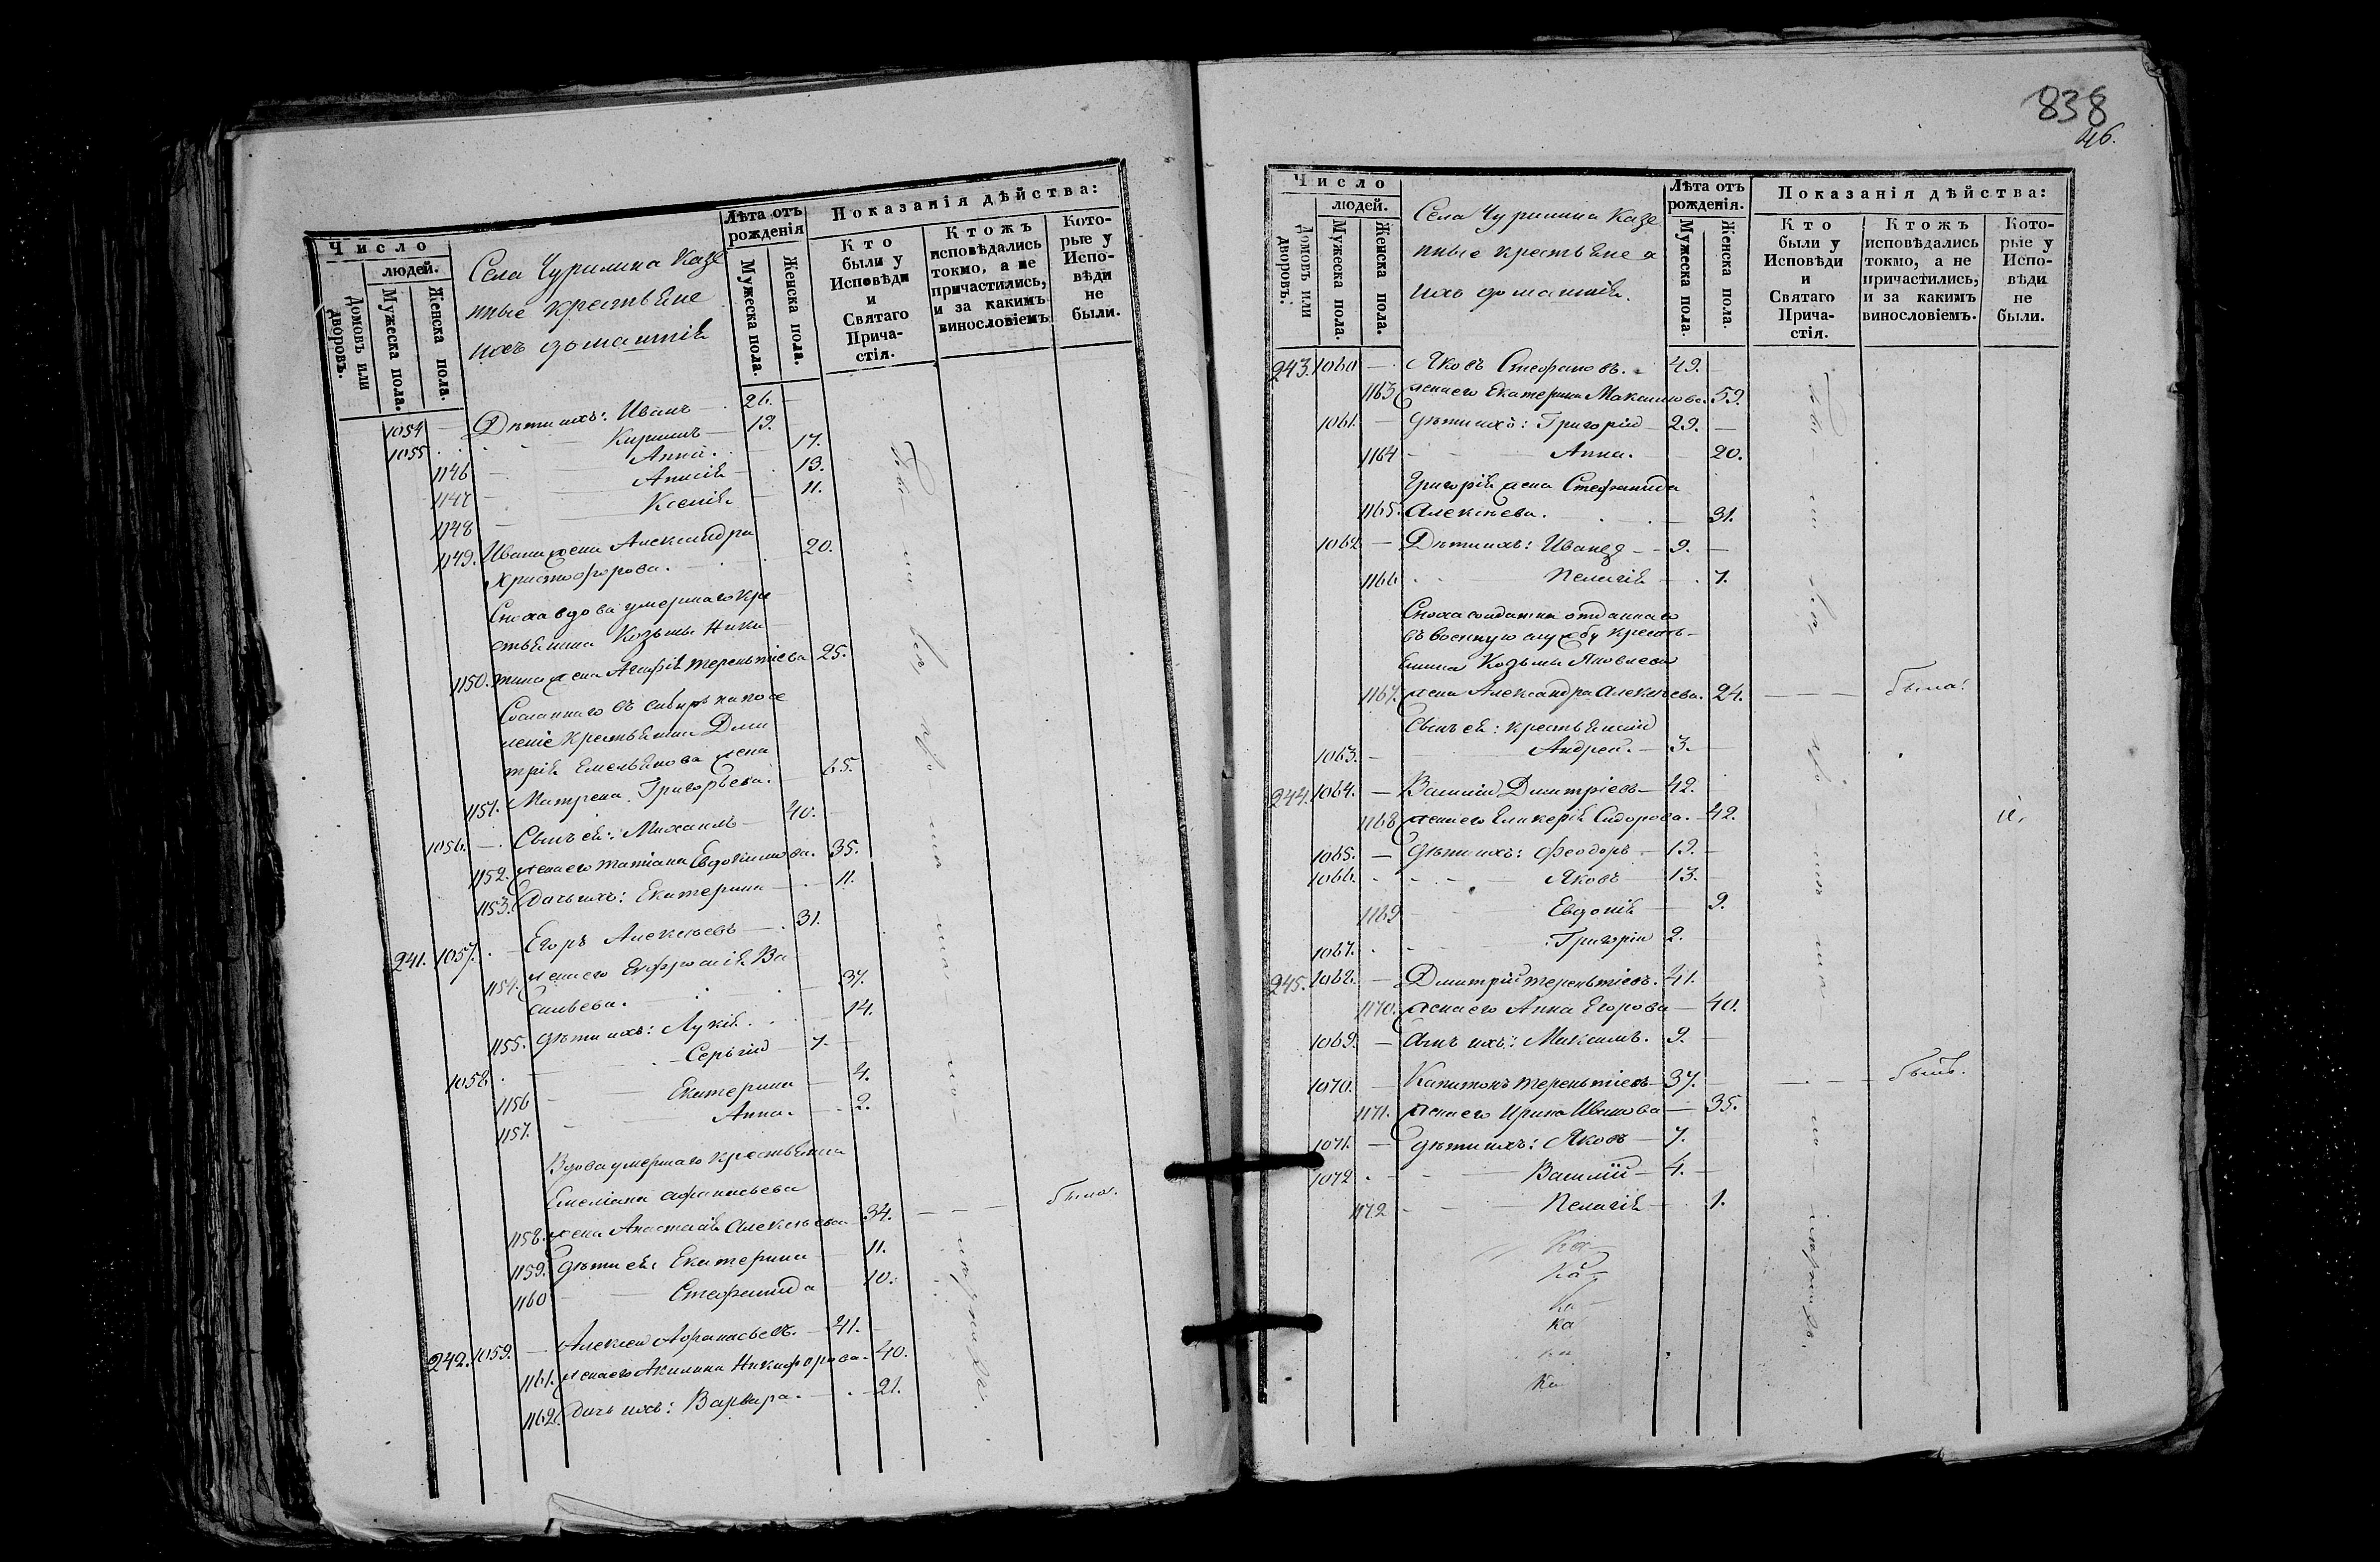 Число
людей.
Домовъ или дворовъ.
Мужеска пола.
Женска пола.
Села Чурилина Казе
нные крестьяне
ихъ домашніе
Лѣта отъ рожденія
Мужеска пола.
Женска пола.
Показанія дѣйства:
Кто были у Исповѣди и Святаго Причастія.
Ктожъ исповѣдались токмо, а не причастились, и за какимъ винословіемъ
Которые у Исповѣди не были.
1054 — Дѣти ихъ: Иванъ — 26. —
1055 Кириллъ — 19.
1146 Анна. 17.
1147 Анисія 13.
1148 Ксенія 11.
1149. Ивана жена Александра
Христофорова. 20.
Сноха вдова умершаго кре
стьянина Козьмы Ники
1150. тина жена Агафія Терентіева 25.
Сосланнаго въ Сибирь на посе
леніе крестьянина Дми
трія Емельянова жена
1151. Матрена Григорьева. 65.
1056. — Сынъ ея: Михаилъ — 40.
1152. жена его Татіана Евдокимова. 35.
1153. Дочь ихъ: Екатерина — 11.
241. 1057. — Егоръ Алексѣевъ — 31.
1154. жена его Евфросинія Ва
сильева. 37.
1155. Дѣти ихъ: Лукія 14.
1058 Сергій 7. —
1156 Екатерина 4.
1157. Анна. 2.
Вдова умершаго крестьянина
Емеліана Афанасьева
1158. жена Анастасія Алексѣева 34. — — — была.
1159. Дѣти ея: Екатерина 11.
1160 Стефанида 10.
242. 1059. — Алексѣй Афанасьевъ. — 41. —
1161. жена его Акилина Никифорова. 40.
1162. Дочь ихъ: Варвара. 21.
838
46.
Число
людей.
Домовъ или дворовъ.
Мужеска пола.
Женска пола.
Села Чурилина Казе
нные крестьяне и
ихъ домашніе.
Лѣта отъ рожденія.
Мужеска пола.
Женска пола.
Показанія дѣйства:
Кто были у Исповѣди и Святаго Причастія.
Ктожъ исповѣдались токмо, а не причастились, и за какимъ винословіемъ.
Которые у Исповѣди не были.
243. 1060 — Яковъ Стефановъ. 49. —
1163 жена его Екатерина Максимова. 59.
1061. — Дѣти ихъ: Григорій — 29. —
1164 Анна. 20.
Григорія жена Стефанида
1165. Алексѣева. 31.
1062 — Дѣти ихъ: Иванъ — 9. —
1166 Пелагія 7.
Сноха солдатка отданнаго
въ военную службу кресть-
янина Козьмы Яковлева
1167. жена Александра Алексѣева. 24. — — — была.
Сынъ ея: крестьянскій
1063. Андрей. — 3. —
244. 1064. — Василій Димитріевъ — 42.
1168 жена его Гликерія Сидорова. 42.
1065. — Дѣти ихъ: Феодоръ 19. —
1066. Яковъ 13. —
1169 Евдокія 9.
1067. Григорій 2. —
245. 1068. — Дмитрій Терентіевъ. 41.
1170. жена его Анна Егорова — 40.
1069. — Сынъ ихъ: Максимъ. 9. —
1070. — Капитонъ Терентіевъ — 37. — — — — былъ.
1171. жена его Ирина Иванова — 35.
1071. — Дѣти ихъ: Яковъ — 7.
1072 Василій — 4. —
1172 Пелагія 1.
Ка
Ка
Ка